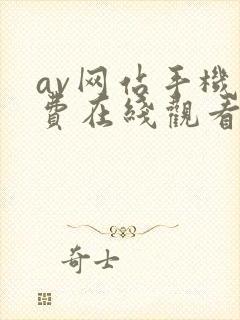 av网佔手機
費在綫觀看
奇士